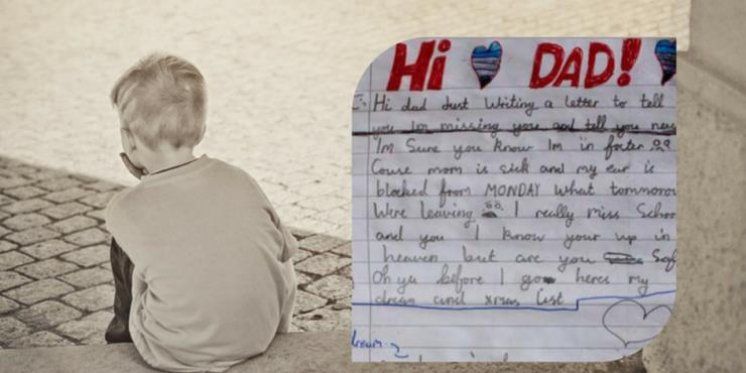 Hi DAD!
Hi dad Just Writing a letter to tell
you Im missing you and tell you
Im Sure you know Im in foster
Couse mom is sick and my ear is
blocked from MONDAY what tommorow
Were leaving I really miss
and you I know your up in
heaven but are you
Oh ya before I go heres my
dream and xmas list